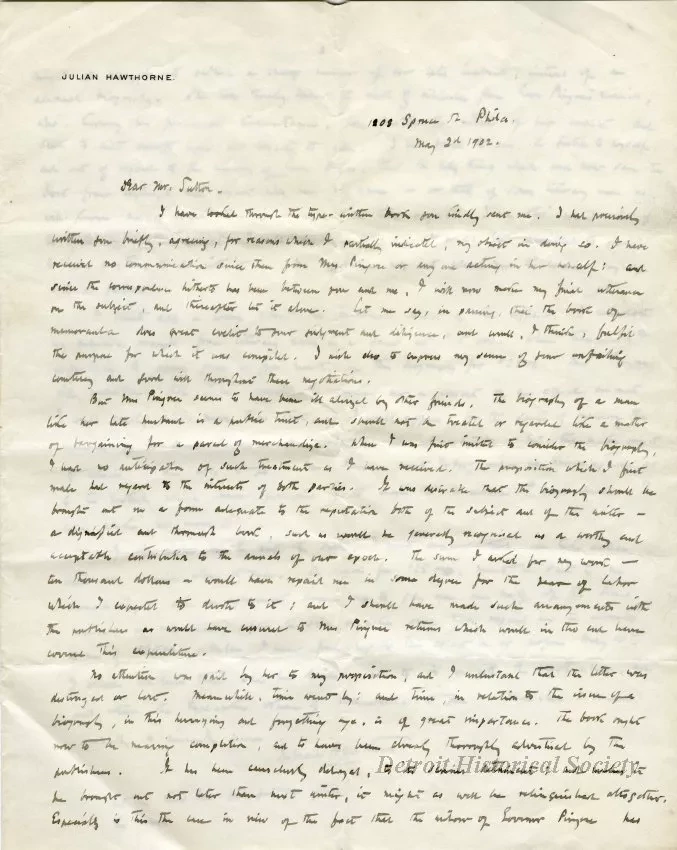 JULIAN HAWTHORNE.
Spruce St. Phila.
May 2d 1902.
Dear Mr. Sutton.
I have looked through the type-written book you kindly sent me. I had previously
written you briefly, agreeing, for reasons which I partially indicated, my object in doing so. I have
received no communication since then from Mrs Pingree or any one acting in her behalf; and
since the correspondence hitherto has been between you and me, I will now make my final utterance
on the subject, and thereafter let it alone. Let me say, in passing, that the book of
memoranda does great credit to your judgment and diligence, and would, I think, fulfil
the purpose for which it was compiled. I wish also to express my sense of your unfailing
courtesy and good will throughout these negotiations.
But Mrs Pingree seems to have been ill advised by other friends. The biography of a man
like her late husband is a public trust, and should not be treated or regarded like a matter
of bargaining for a parcel of merchandize. When I was first invited to consider the biography,
I had no anticipation of such treatment as I have received. The proposition which I first
made had regard to the interests of both parties. It was desirable that the biography should be
brought out in a form adequate to the reputation both of the subject and of the writer —
a dignified and thorough book, such as would be generally recognised as a worthy and
acceptable contribution to the annals of our epoch. The sum I asked for my work —
ten thousand dollars — would have repaid me in some degree for the year of labor
which I expected to devote to it; and I should have made such arrangements with
the publishers as would have ensured to Mrs Pingree returns which would in the end have
covered this expenditure.
No attention was paid by her to my proposition, and I understand that the letter was
destroyed or lost. Meanwhile, time went by: and time, in relation to the issue of a
biography, in this hurrying and forgetting age, is of great importance. The book ought
now to be nearing completion, and to have been already thoroughly advertised by the
publishers. It has been causelessly delayed, to its and unless it
be brought out not later than next winter, it might as well be relinquished altogether.
Especially is this the case in view of the fact that the widow of Governor Pingree has
Detroit Historical Society